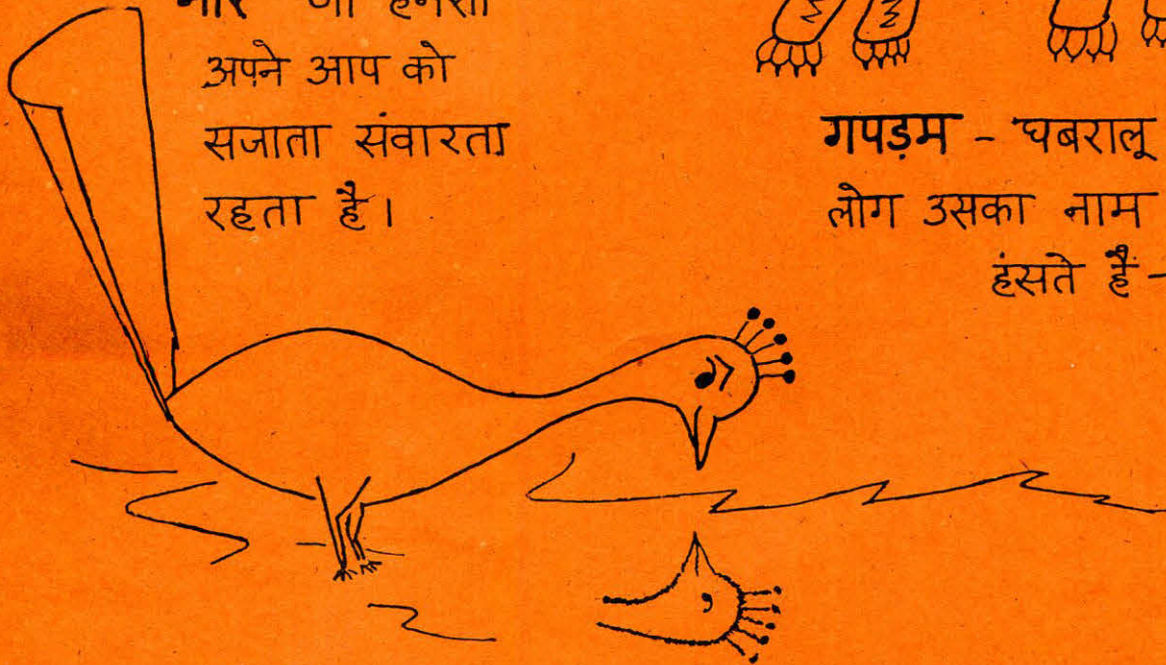 मोर जो हमेशा
अपने आप को
सजाता संवारता
रहता है।
गपड़म - घबरालू
लोग उसका नाम
हंसते हैं -